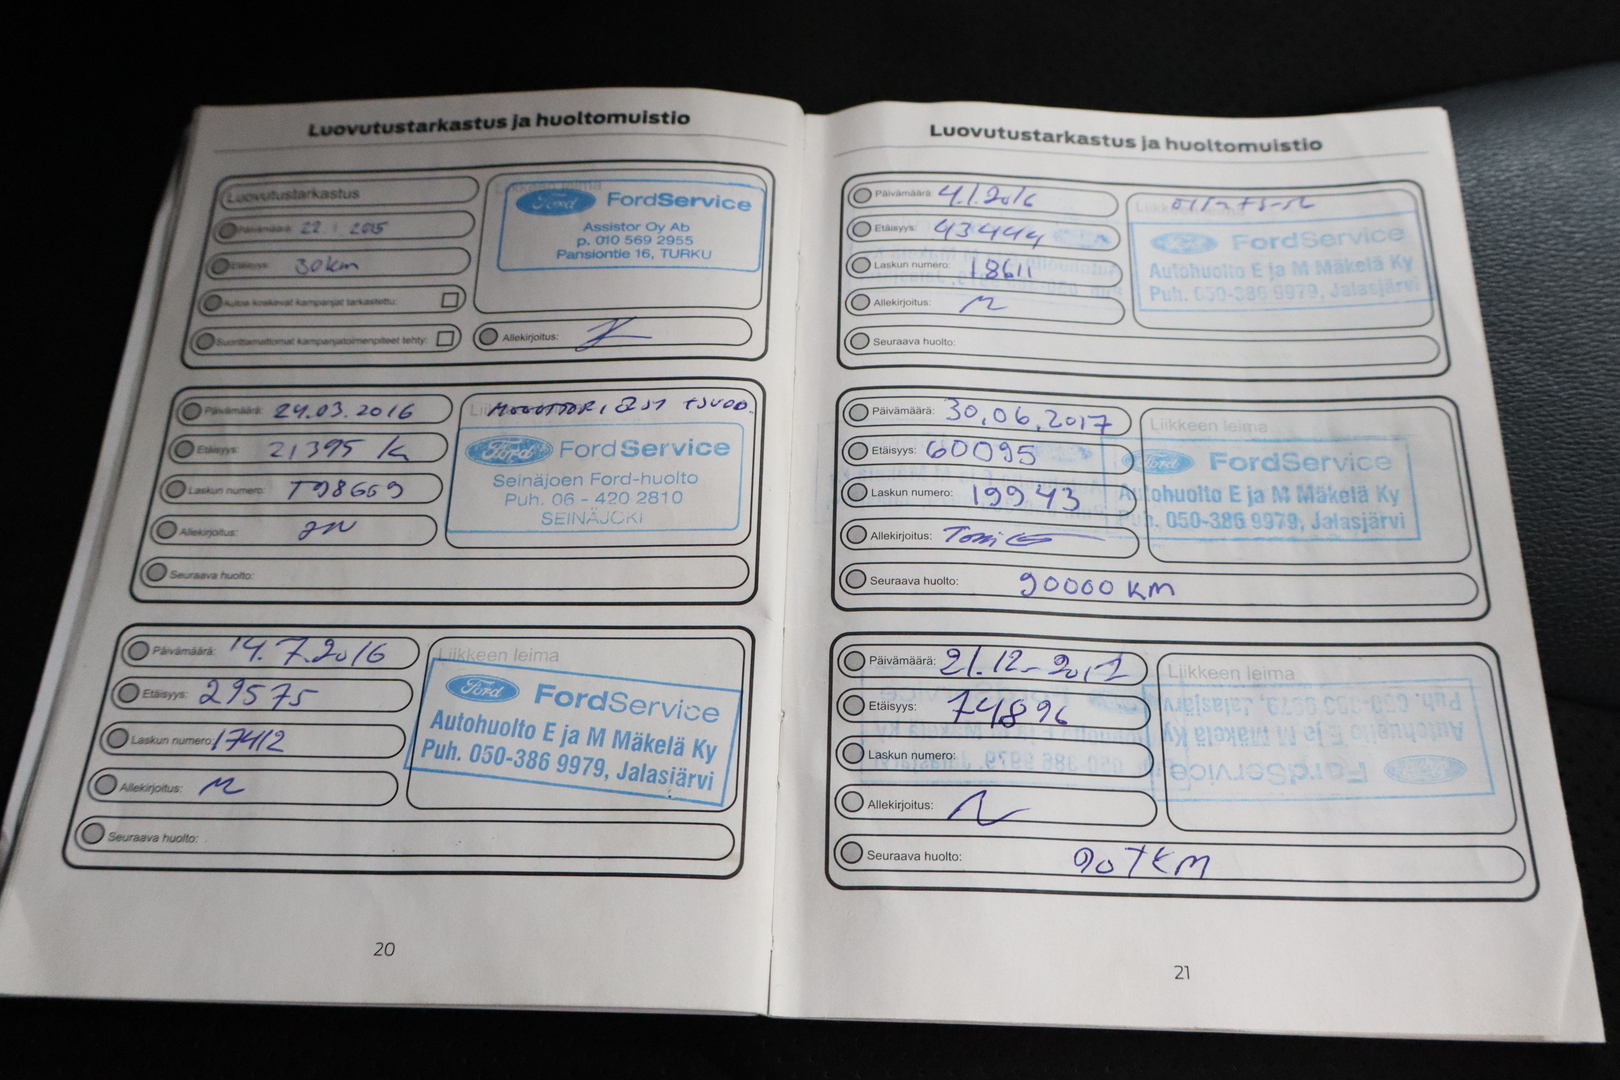 Luovutustarkastus ja huoltomuistio
Luovutustarkastus
Päivämäärä: 2015
Etäisyys: 30km
Autoa koskevat kampanjat tarkastettu:
Suorittamattomat kampanjatoimenpiteet tehty:
Liikkeen leima
Ford FordService
Assistor Oy Ab
p. 010 569 2955
Pansiontie 16, TURKU
Allekirjoitus:
Päivämäärä: 24.03.2016
Etäisyys: 21395
Laskun numero: T98669
Allekirjoitus:
Seuraava huolto:
Ford FordService
Seinäjoen Ford-huolto
Puh. 06 - 420 2810
SEINÄJOKI
Päivämäärä: 14.7.2016
Etäisyys: 29575
Laskun numero: 17412
Allekirjoitus:
Seuraava huolto:
Liikkeen leima
Ford FordService
Autohuolto E ja M Mäkelä Ky
Puh. 050-386 9979, Jalasjärvi
20
Luovutustarkastus ja huoltomuistio
Päivämäärä: 4.1.2016
Etäisyys: 43444
Laskun numero: 18611
Allekirjoitus:
Seuraava huolto:
Ford FordService
Autohuolto E ja M Mäkelä Ky
Puh. 050-386 9979, Jalasjärvi
Päivämäärä: 30.06.2017
Etäisyys: 60095
Laskun numero: 19943
Allekirjoitus:
Seuraava huolto: 90000 KM
Liikkeen leima
Ford FordService
Autohuolto E ja M Mäkelä Ky
Puh. 050-386 9979, Jalasjärvi
Päivämäärä: 21.12-2017
Etäisyys: 74896
Laskun numero:
Allekirjoitus:
Seuraava huolto: 90 TKM
Liikkeen leima
Puh. 050-386 9979, Jalasjärvi
Autohuolto E ja M Mäkelä Ky
FordService
21